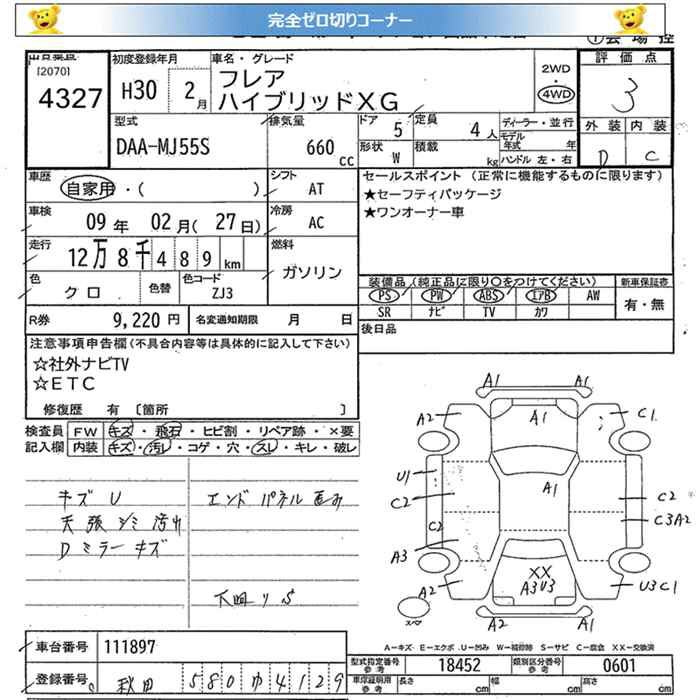 完全ゼロ切りコーナー
出品番号
[2070]
4327
初度登録年月
H30 2月
車名・グレード
フレア
ハイブリッドXG
2WD
・
4WD
評価点
3
型式
DAA-MJ55S
排気量
660 cc
ドア 5
定員 4人
形状 W
積載 kg
ディーラー・並行
モデル年式 年
ハンドル 左・右
外装 内装
D C
車歴
自家用・( )
シフト AT
セールスポイント(正常に機能するものに限ります)
★セーフティパッケージ
★ワンオーナー車
車検
09年 02月(27日)
冷房 AC
走行
12万8千489km
燃料
ガソリン
色
クロ
色替
色コード
ZJ3
装備品(純正品に限り○をつけてください)
新車保証書
PS PW ABS エアB AW
SR ナビ TV カワ
有・無
R券 9,220円
名変通知期限 月 日
後日品
注意事項申告欄(不具合内容等は具体的に記入して下さい)
☆社外ナビTV
☆ETC
修復歴 有 [箇所 ]
検査員
記入欄
FW キズ・飛石・ヒビ割・リペア跡・×要
内装 キズ・汚レ・コゲ・穴・スレ・キレ・破レ
キズ U
天張シミ汚れ
Dミラーキズ
エンドパネル歪み
下回りS
A1 A1
A2 A1 C1
U1 A1
C2 C2
C2 C3A2
A3
XX
A3U3
A2 U3C1
スペ
A2 A1
A-キズ E-エクボ U-凹み W-補修跡 S-サビ C-腐食 XX-交換済
車台番号 111897
型式指定番号
参考
18452
類別区分番号
参考
0601
登録番号 秋田 580ゆ4129
車庫証明用
参考
長さ cm 幅 cm 高さ cm